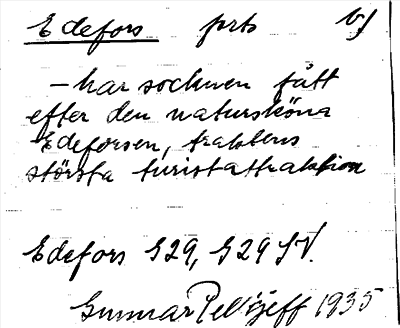 Edefors prts bj
— har socknen fått
efter den natursköna
Edeforsen, traktens
största turistattraktion
Edefors S29, S29 SV.
Gunnar Pellijeff 1935